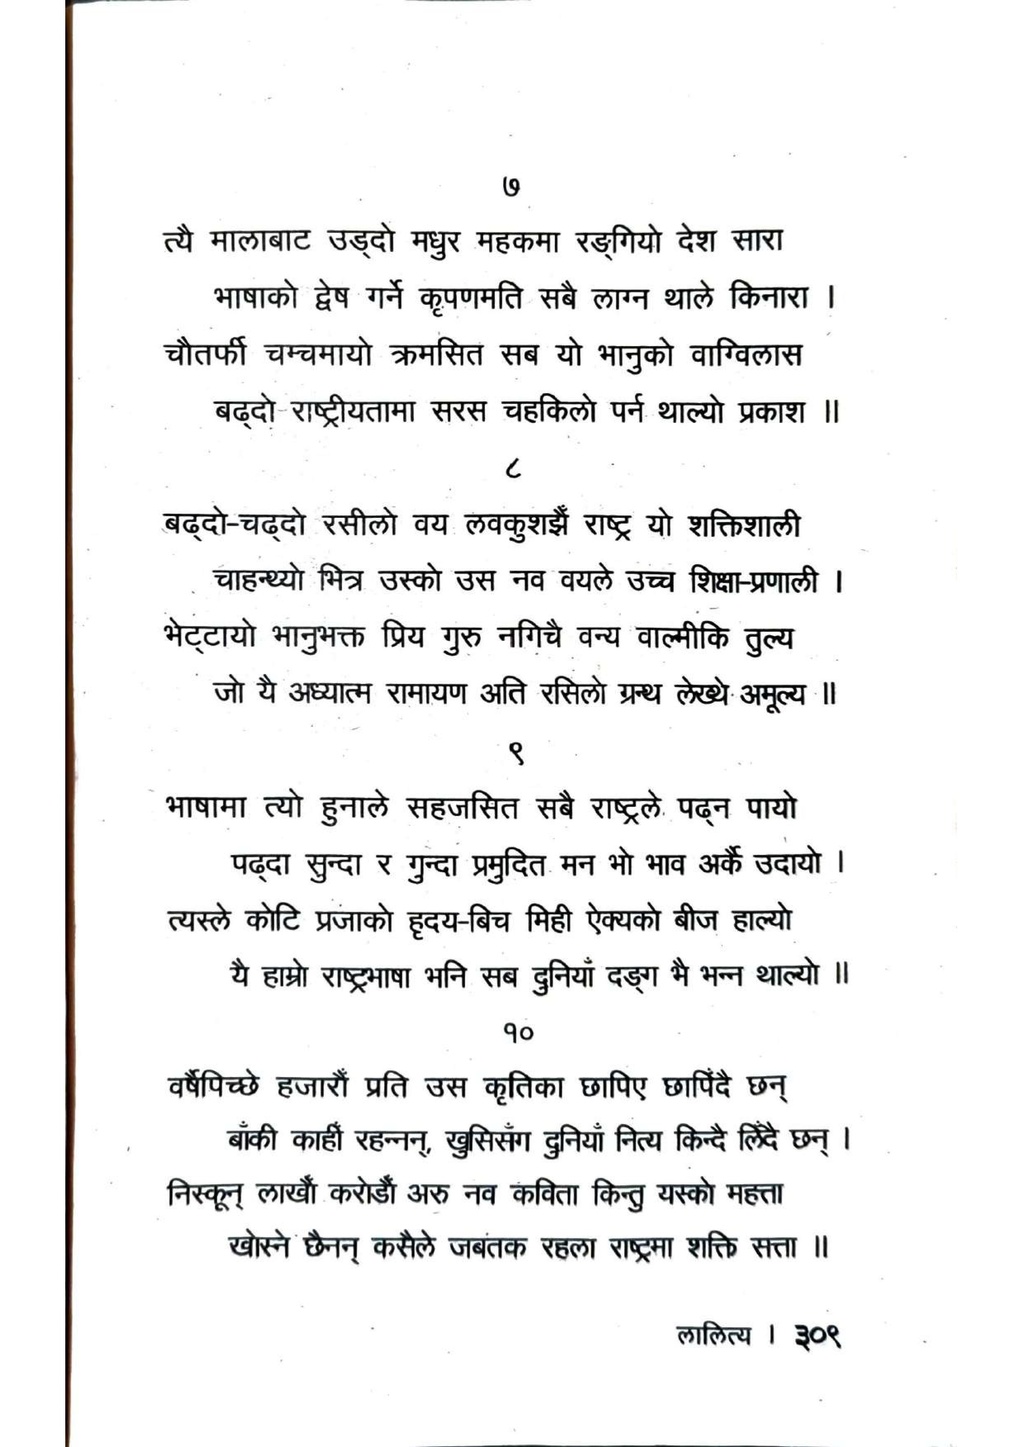 ७
त्यै मालाबाट उड्दो मधुर महकमा रङ्गियो देश सारा
भाषाको द्वेष गर्ने कृपणमति सबै लाग्न थाले किनारा ।
चौतर्फी चम्चमायो क्रमसित सब यो भानुको वाग्विलास
बढ्दो राष्ट्रीयतामा सरस चहकिलो पर्न थाल्यो प्रकाश ॥
८
बढ्दो-चढ्दो रसीलो वय लवकुशझैँ राष्ट्र यो शक्तिशाली
चाहन्थ्यो भित्र उस्को उस नव वयले उच्च शिक्षा-प्रणाली ।
भेट्टायो भानुभक्त प्रिय गुरु नगिचै वन्य वाल्मीकि तुल्य
जो यै अध्यात्म रामायण अति रसिलो ग्रन्थ लेख्थे अमूल्य ॥
९
भाषामा त्यो हुनाले सहजसित सबै राष्ट्रले पढ्न पायो
पढ्दा सुन्दा र गुन्दा प्रमुदित मन भो भाव अर्कै उदायो ।
त्यस्ले कोटि प्रजाको हृदय-बिच मिही ऐक्यको बीज हाल्यो
यै हाम्रो राष्ट्रभाषा भनि सब दुनियाँ दङ्ग भै भन्न थाल्यो ॥
१०
वर्षैपिच्छे हजारौँ प्रति उस कृतिका छापिए छापिँदै छन्
बाँकी काहीँ रहन्नन्, खुसिसँग दुनियाँ नित्य किन्दै लिँदै छन् ।
निस्कून् लाखौँ करोडौँ अरु नव कविता किन्तु यस्को महत्ता
खोस्ने छैनन् कसैले जबतक रहला राष्ट्रमा शक्ति सत्ता ॥
लालित्य । ३०९